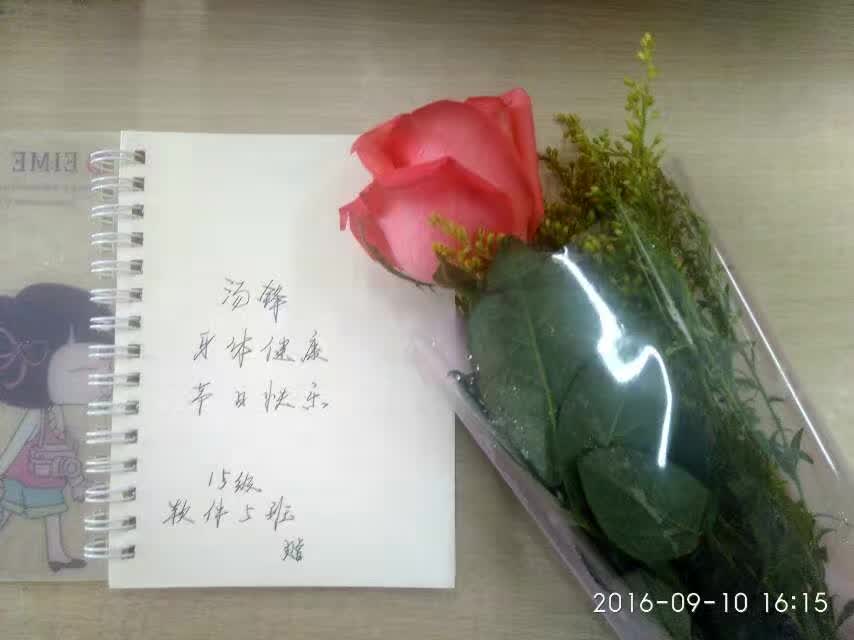 EIME
汤锋
身体健康
节日快乐
15级
软件5班
赠
2016-09-10 16:15